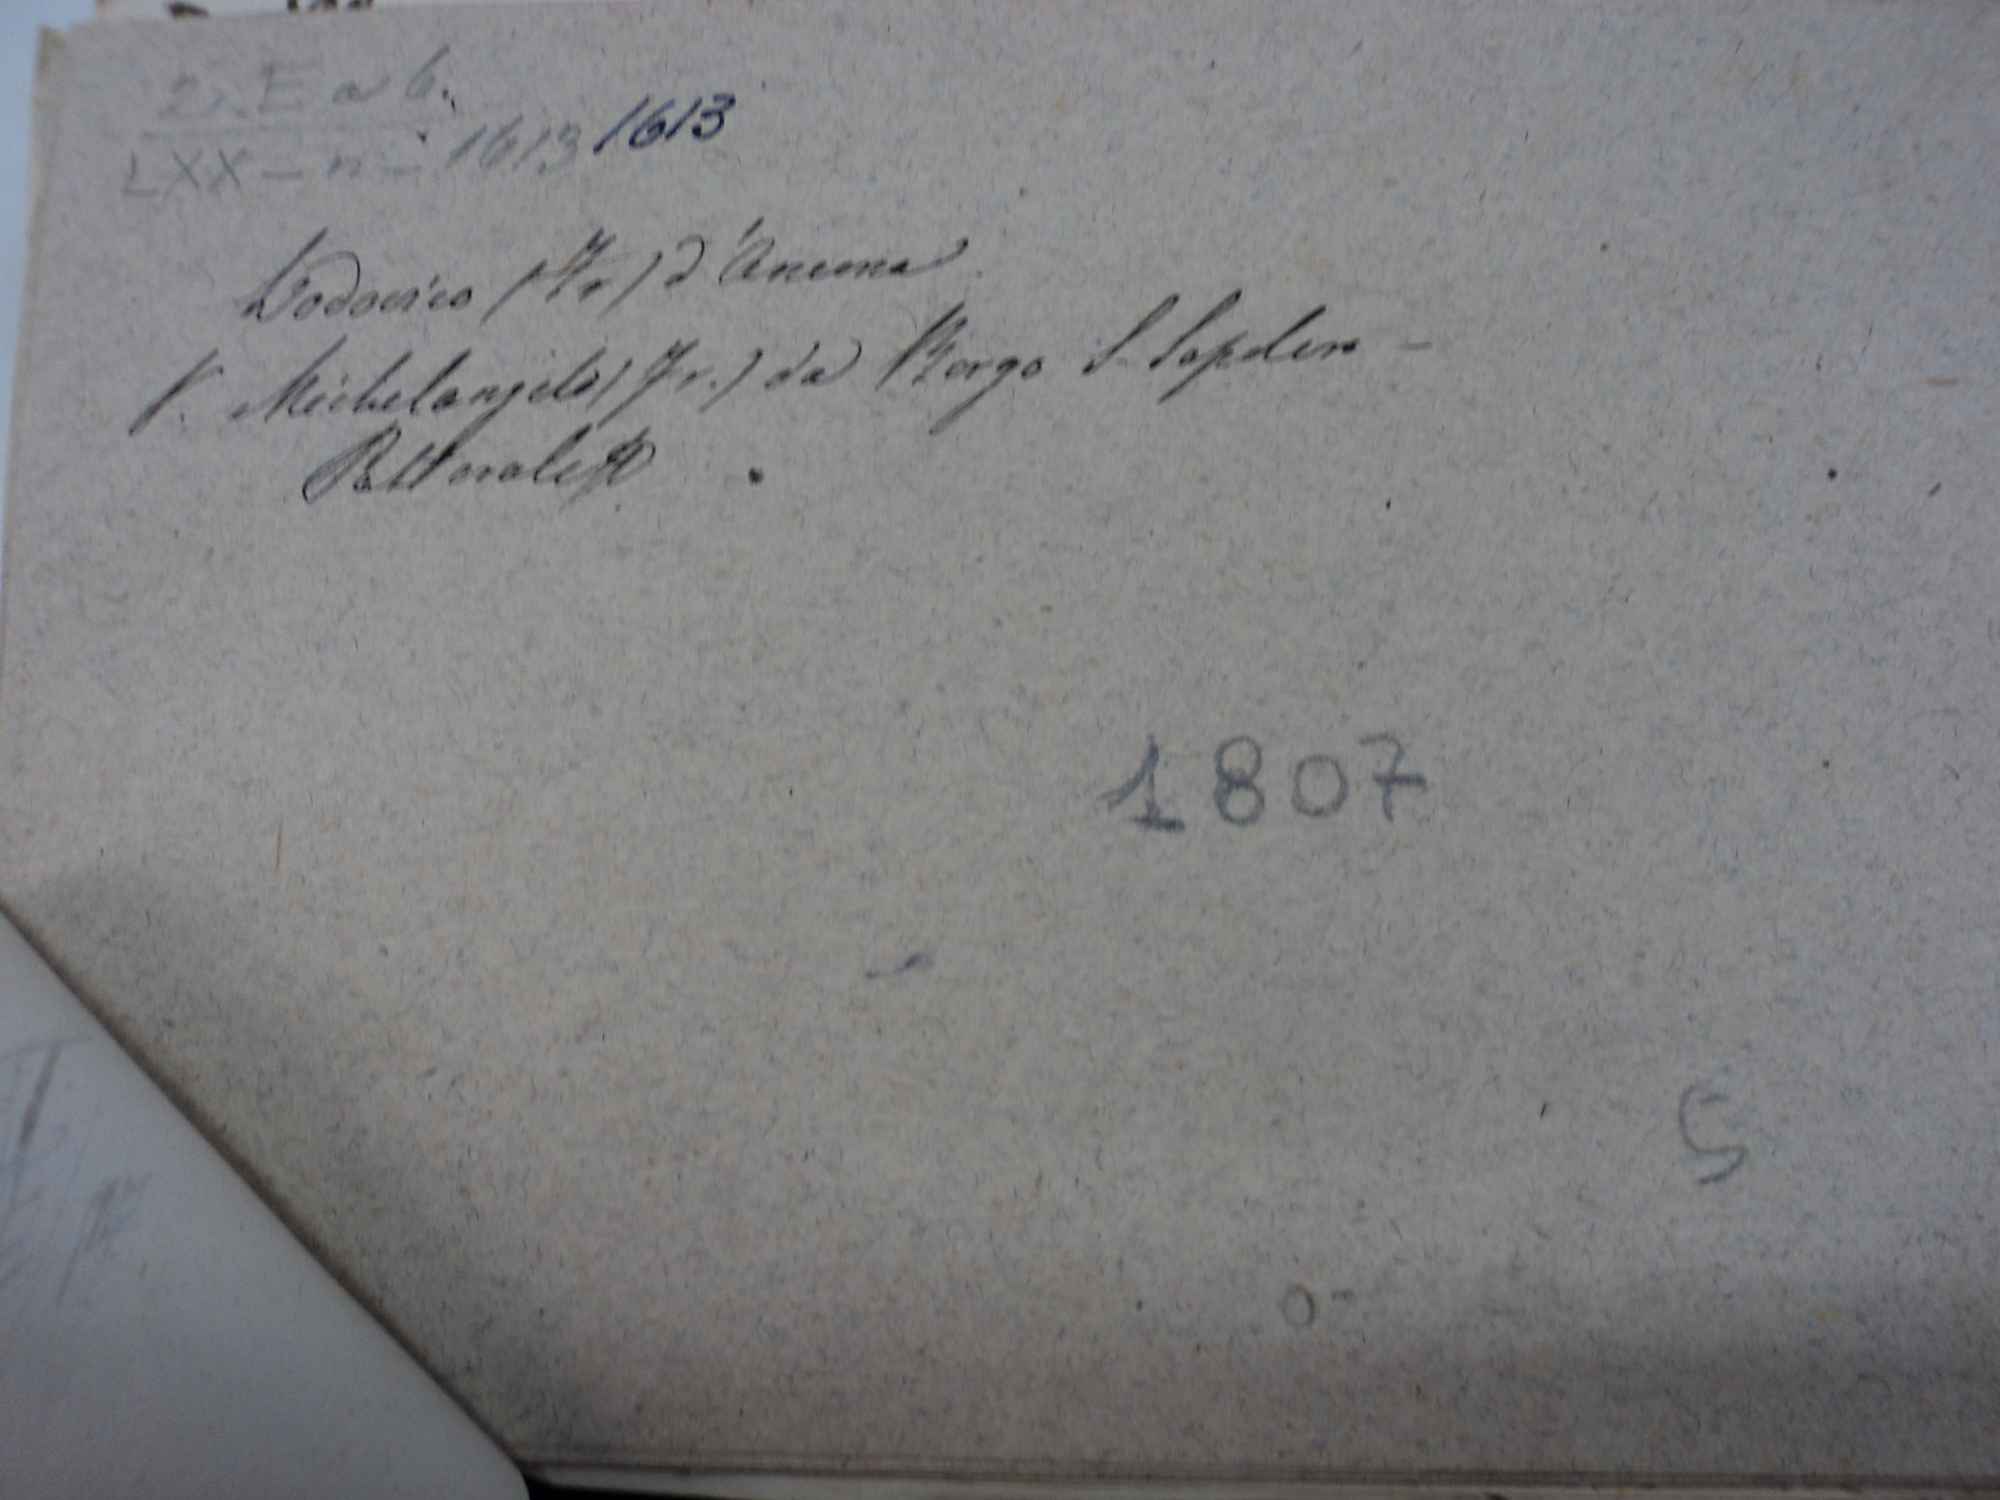 2. E a b.
LXX - n - 1613 1613
Lodovico (Fr) d'Ancona
V. Michelangelo (Fr.) da Borgo S. Sapolcro -
1807
5
0-